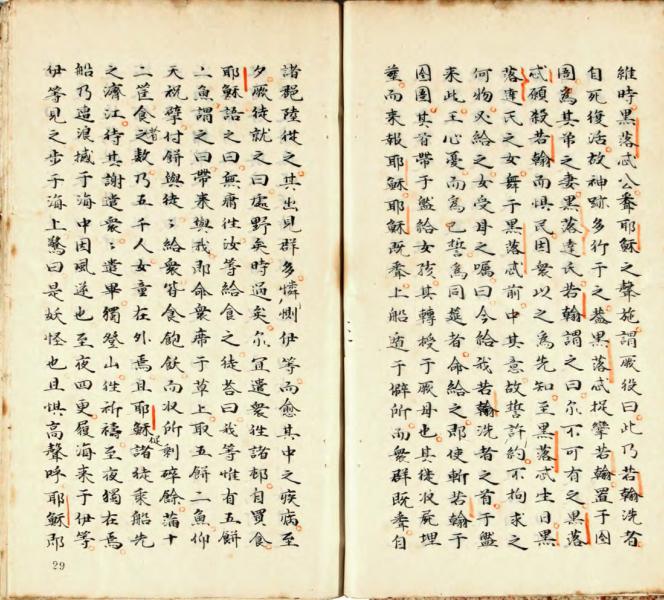 維時黑落忒公聞耶穌之聲施謂厥役曰此乃若翰洗者
自死復活故神跡多行于之蓋黑落忒捉拏若翰置于囹
圄為其弟之妻黑落達氏若翰謂之曰尔不可有之黑落
忒願殺若翰而惧民因衆以之為先知至黑落忒生日黑
落達氏之女舞于黑落忒前中其意故誓許約不拘求之
何物必給之女受母之嘱曰今給我若翰洗者之首于盤
来此王心憂而為已誓為同筵者命給之即使斬若翰于
囹圄其首帶于盤給女孩其轉授于厥母也其徒收屍埋
塟而来報耶穌耶穌既聞上船避于僻所而衆群既聞自
諸邑陸従之其出見群多憐惻伊等而愈其中之疾病至
夕厥徒就之曰處野矣時過矣尔宜遣衆徃諸邨自買食
耶穌語之曰無庸徃汝等給食之徒荅曰我等惟有五餅
二魚謂之曰帶来與我即命衆席于草上取五餅二魚仰
天祝擘付餅與徒徒給衆皆食飽飲而収所剩碎餘滿十
二筐食者之數乃五千人女童在外焉且耶穌促諸徒乘船先
之濟江待其謝遣衆衆遣畢獨登山徃祈禱至夜獨在焉
船乃遭浪撼于海中因風逆也至夜四更履海来于伊等
伊等見之步于海上驚曰是妖怪也且惧高聲呼耶穌即
29